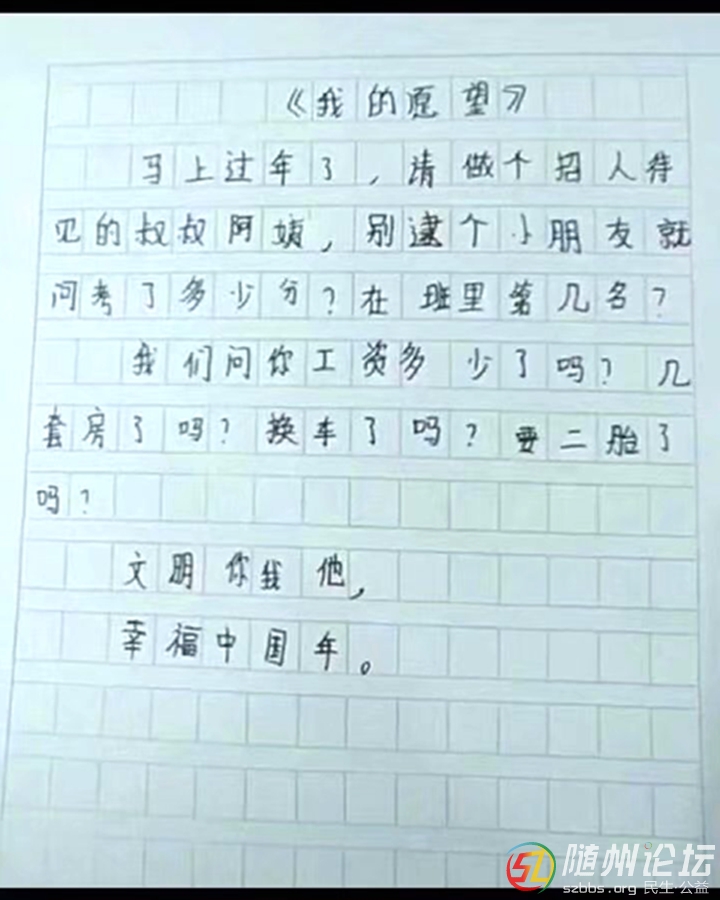 《我的愿望》
马上过年了，请做个招人待
见的叔叔阿姨，别逮个小朋友就
问考了多少分？在班里第几名？
我们问你工资多少了吗？几
套房了吗？换车了吗？要二胎了
吗？
文明你我他，
幸福中国年。
随州论坛
szbbs.org 民生·公益